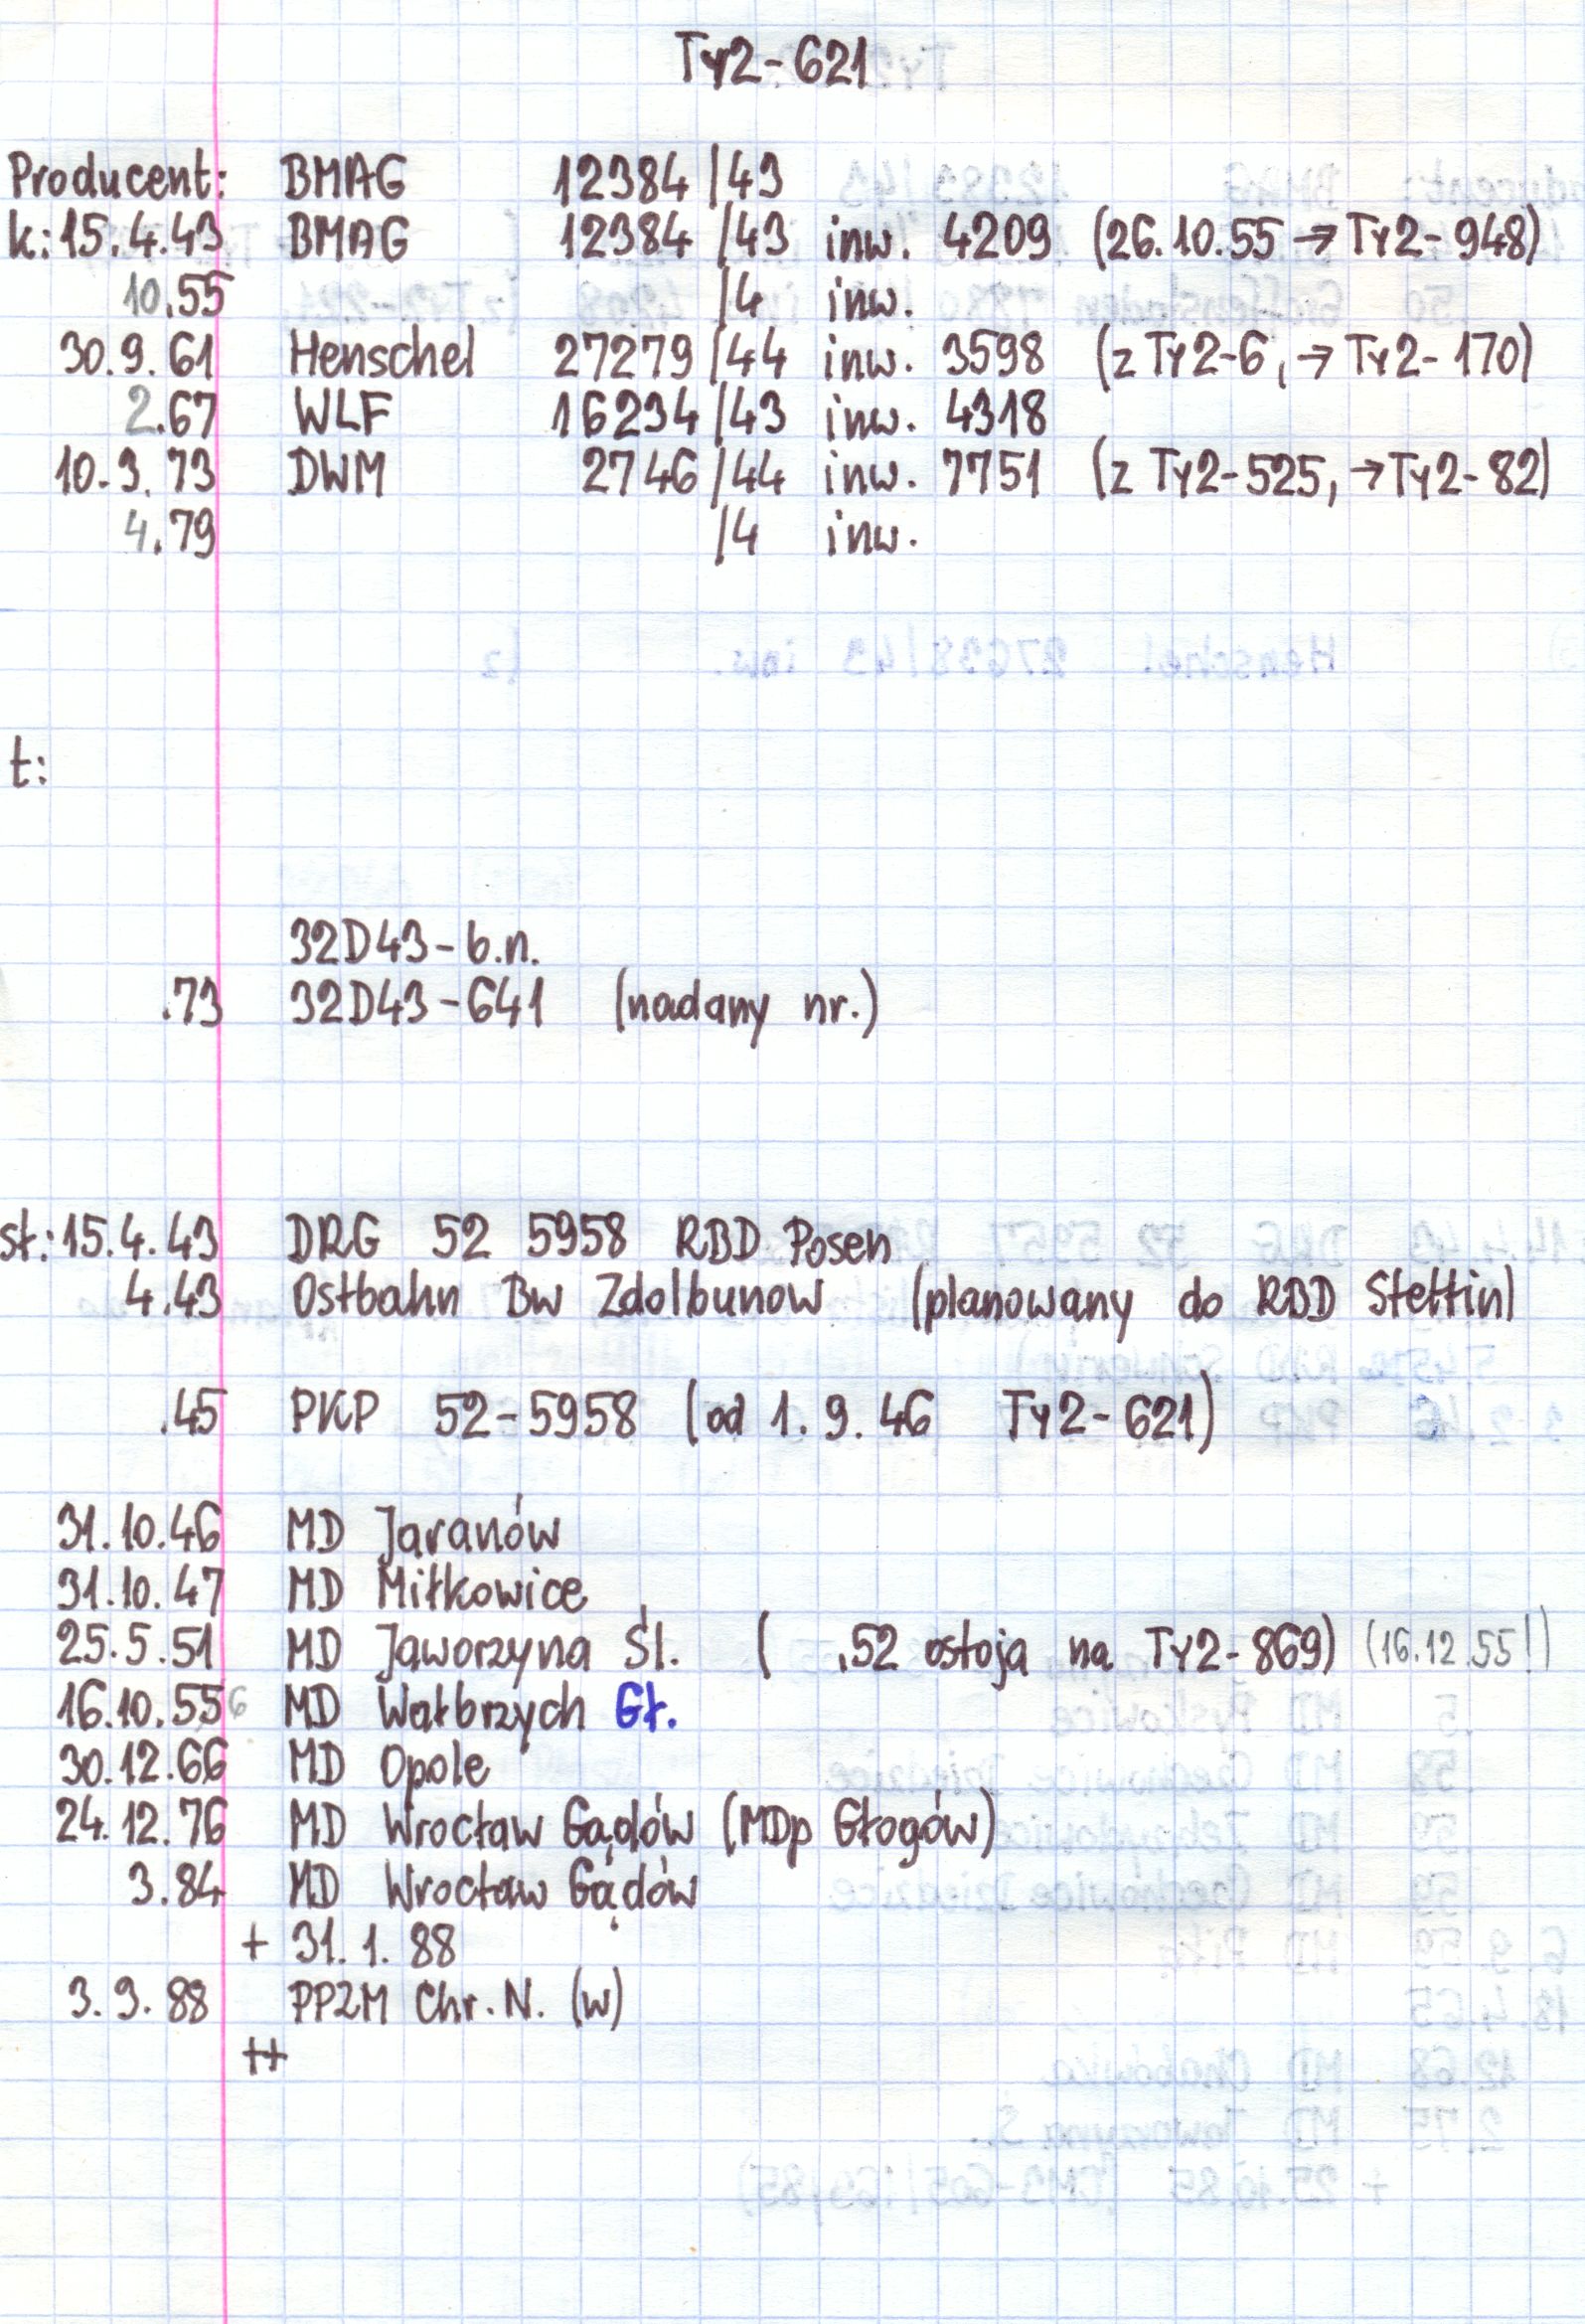 Ty2-621
Producent: BMAG 12384/43
k: 15.4.43 BMAG 12384/43 inw. 4209 (26.10.55 → Ty2-948)
10.55 /4 inw.
30.9.61 Henschel 27279/44 inw. 3598 (z Ty2-6, → Ty2-170)
2.67 WLF 16234/43 inw. 4318
10.9.73 DWM 2746/44 inw. 7751 (z Ty2-525, → Ty2-82)
4.79 /4 inw.
t:
32D43-b.n.
.73 32D43-641 (nadany nr.)
st: 15.4.43 DRG 52 5958 RBD Posen
4.43 Ostbahn Bw Zdolbunow (planowany do RBD Stettin)
.45 PKP 52-5958 (od 1.9.46 Ty2-621)
31.10.46 MD Jaranów
31.10.47 MD Miłkowice
25.5.51 MD Jaworzyna Śl. ( .52 ostoja na Ty2-869) (16.12.55!)
16.10.55 6 MD Wałbrzych Gł.
30.12.66 MD Opole
24.12.76 MD Wrocław Gądów (MDp Głogów)
3.84 MD Wrocław Gądów
+ 31.1.88
3.9.88 PPZM Chr.N. (w)
++